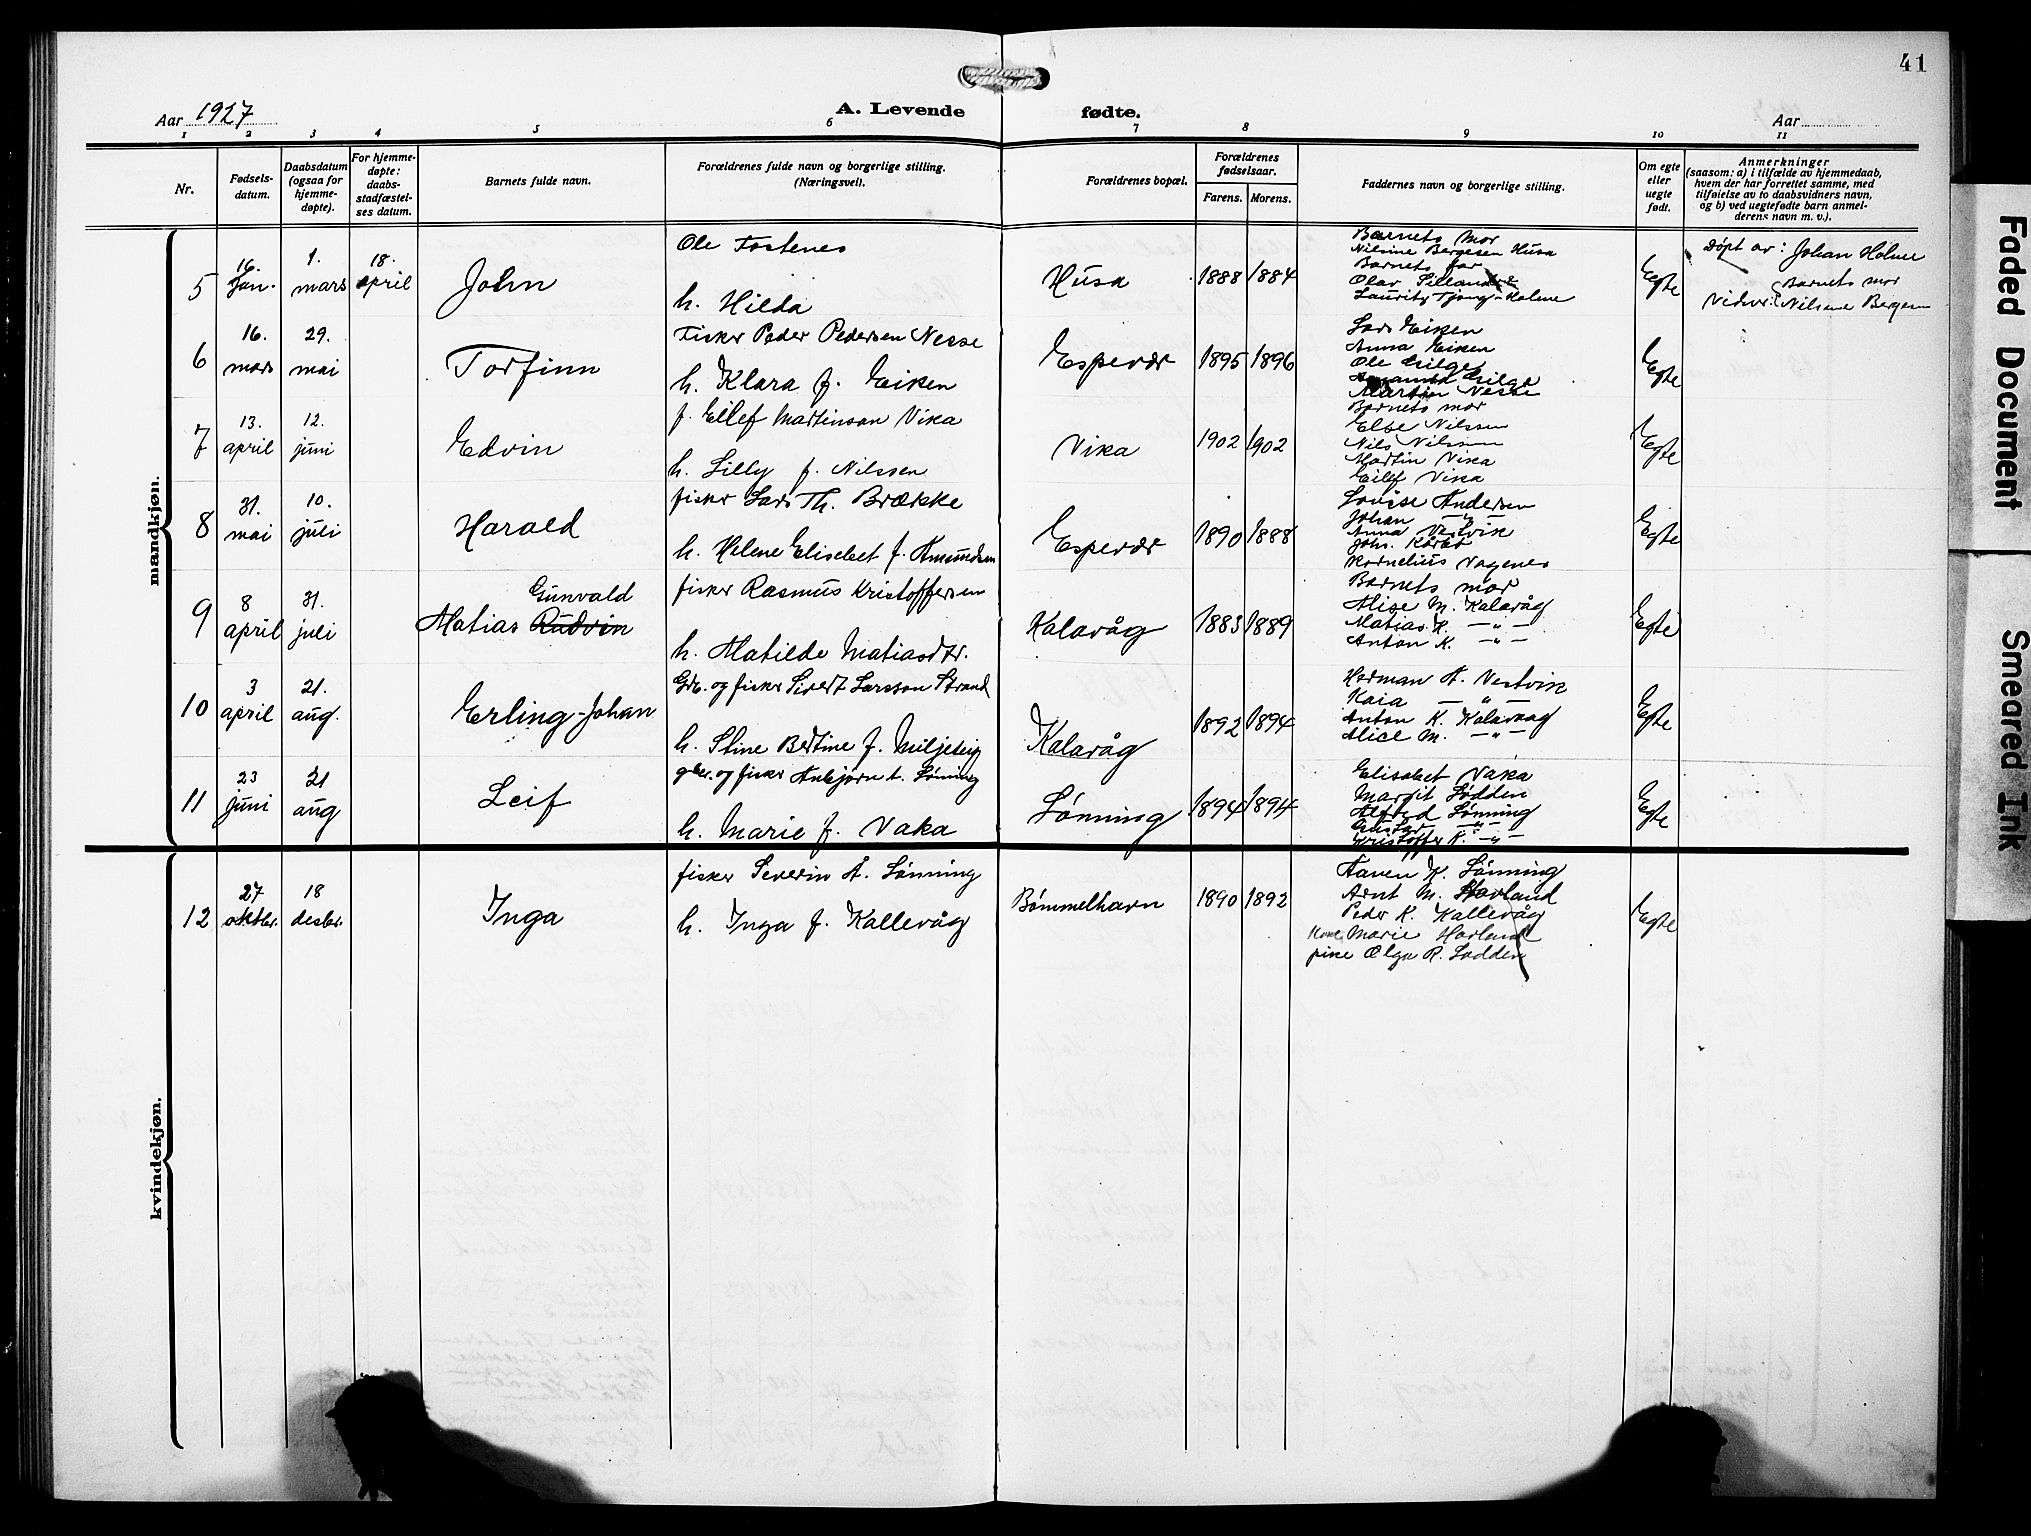 41
Aar 1927
A. Levende fødte.
Aar
1 2 3 4 5 6 7 8 9 10 11
Nr.
Fødsels-
datum.
Daabsdatum
(ogsaa for
hjemme-
døpte).
For hjemme-
døpte:
daabs-
stadfæstel-
ses datum.
Barnets fulde navn.
Forældrenes fulde navn og borgerlige stilling.
(Næringsvei).
Forældrenes bopæl.
Forældrenes
fødselsaar.
Farens. Morens.
Faddernes navn og borgerlige stilling.
Om egte
eller
uegte
født.
Anmerkninger
(saasom: a) i tilfælde av hjemmedaab,
hvem der har forrettet samme, med
tilføielse av to daabsvidners navn,
og b) ved uegtefødte barn anmel-
derens navn m. v.).
mandkjøn.
5
16.
Jan.
1.
mars
18.
april
John
Ole Tostenes
h. Hilda
Husa
1888 1884
Barnets mor
Nilsine Bergesen Husa
Barnets far
Olav
Laurits Tjong-Holme
Egte
Døpt av: Johan Holme
Barnets mor
Vidner: Nilsine Bergesen
6
16.
mars
29.
mai
Torfinn
Fisker Peder Pedersen Nesse
h. Klara f. Eiken
Espevær
1895 1896
Lars Eiken
Anna Eiken
Ole Gilge
Gilge
Martin Nesse
Egte
7
13.
april
12.
juni
Edvin
f. Eilef Martinson Vika
h. Lilly f. Nilssen
Vika
1902 1902
Barnets mor
Else Nilssen
Nils Nilssen
Martin Vika
Eilef Vika
Egte
8
31.
mai
10.
juli
Harald
fisker Lars Th. Brække
h. Helene Elisabet f. Amundsen
Espevær
1890 1888
Louise Andersen
Johan —"—
Anna Vestvik
Johs.
Kornelius Vagenes
Egte
9
8
april
31.
juli
Gunvald
Matias Rudvin
fisker Rasmus Kristoffersen
h. Matilde Matiasdtr.
Kalavåg
1883 1889
Barnets mor
Alise M. Kalavåg
Matias K. —"—
Anton K. —"—
Egte
10
3
april
21.
aug.
Erling-Johan
Gbr. og fisker Sivert Larsson Strand
h. Stine Bertine f. Miljeteig
Kalavåg
1892 1894
Herman A. Vestvik
Kaia —"—
Anton K. Kalavaag
Alice M. —"—
Egte
11
23
juni
21
aug
Leif
gbr. og fisker Anbjørn A. Lønning
h. Marie f. Vaka
Lønning
1894 1894
Elisabet Vaka
Margit Lodden
Alfred Lønning
Gustav —"—
Kristoffer K. —"—
Egte
kvindekjøn.
12
27
oktbr.
18
desbr.
Inga
fisker Severin A. Lønning
h. Inga f. Kallevåg
Bømmelhavn
1890 1892
Karen K. Lønning
Arnt M. Havland
Peder K. Kallevåg
Kone Marie Havland
pike Olga R. Lodden
Egte
Faded Document
Smeared Ink